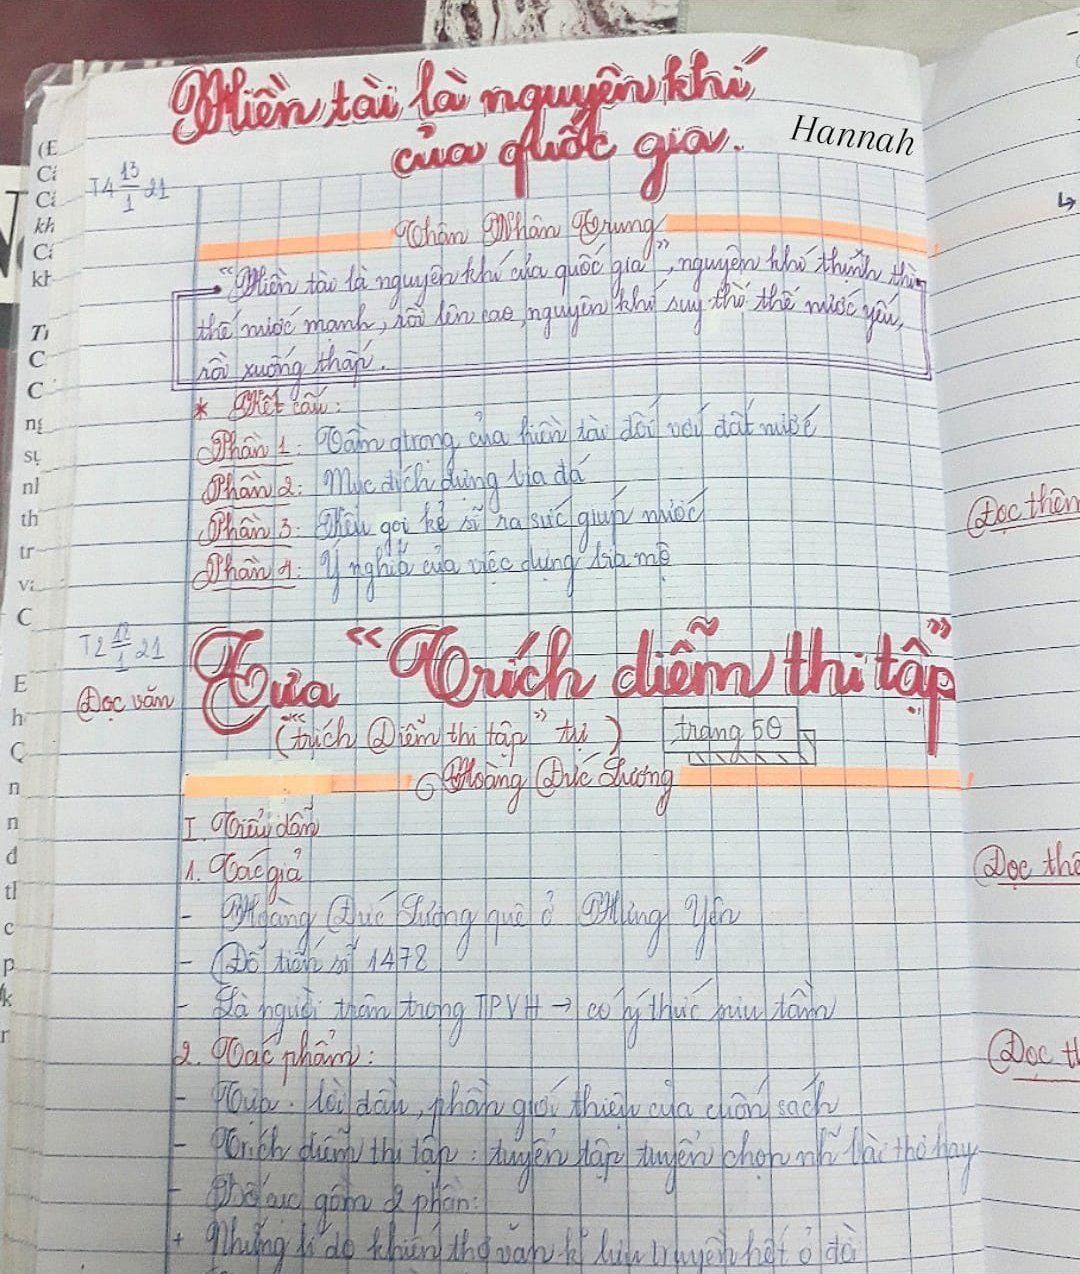 Hiền tài là nguyên khí
của quốc gia.
Hannah
T4 13/1 21
Thân Nhân Trung
"Hiền tài là nguyên khí của quốc gia", nguyên khí thịnh thì
thế nước mạnh, rồi lên cao, nguyên khí suy thì thế nước yếu,
rồi xuống thấp.
* Kết cấu:
Phần 1: Tầm qtrọng của hiền tài đối với đất nước
Phần 2: Mục đích dựng bia đá
Phần 3: Kêu gọi kẻ sĩ ra sức giúp nước
Phần 4: Ý nghĩa của việc dựng bia
T2 21
Đọc văn
Tựa "Trích diễm thi tập"
(trích "Diễm thi tập" tự)
trang 50
Hoàng Đức Lương
I. Tiểu dẫn
1. Tác giả
- Hoàng Đức Lương quê ở Hưng Yên
- Đỗ tiến sĩ 1478
- Là người trân trọng TPVH → có ý thức sưu tầm
2. Tác phẩm:
- Tựa: lời dẫn, phần giới thiệu của cuốn sách
- Trích diễm thi tập: tuyển tập tuyển chọn nh~ bài thơ hay
- Bố cục gồm 2 phần:
+ Những lí do khiến thơ văn k lưu truyền hết ở đời
(E
kh
Ti
C
C
ng
nl
th
tr
vi
C
E
h
n
n
đ
tl
c
p
k
Đọc thêm
Đọc thê
Đọc th